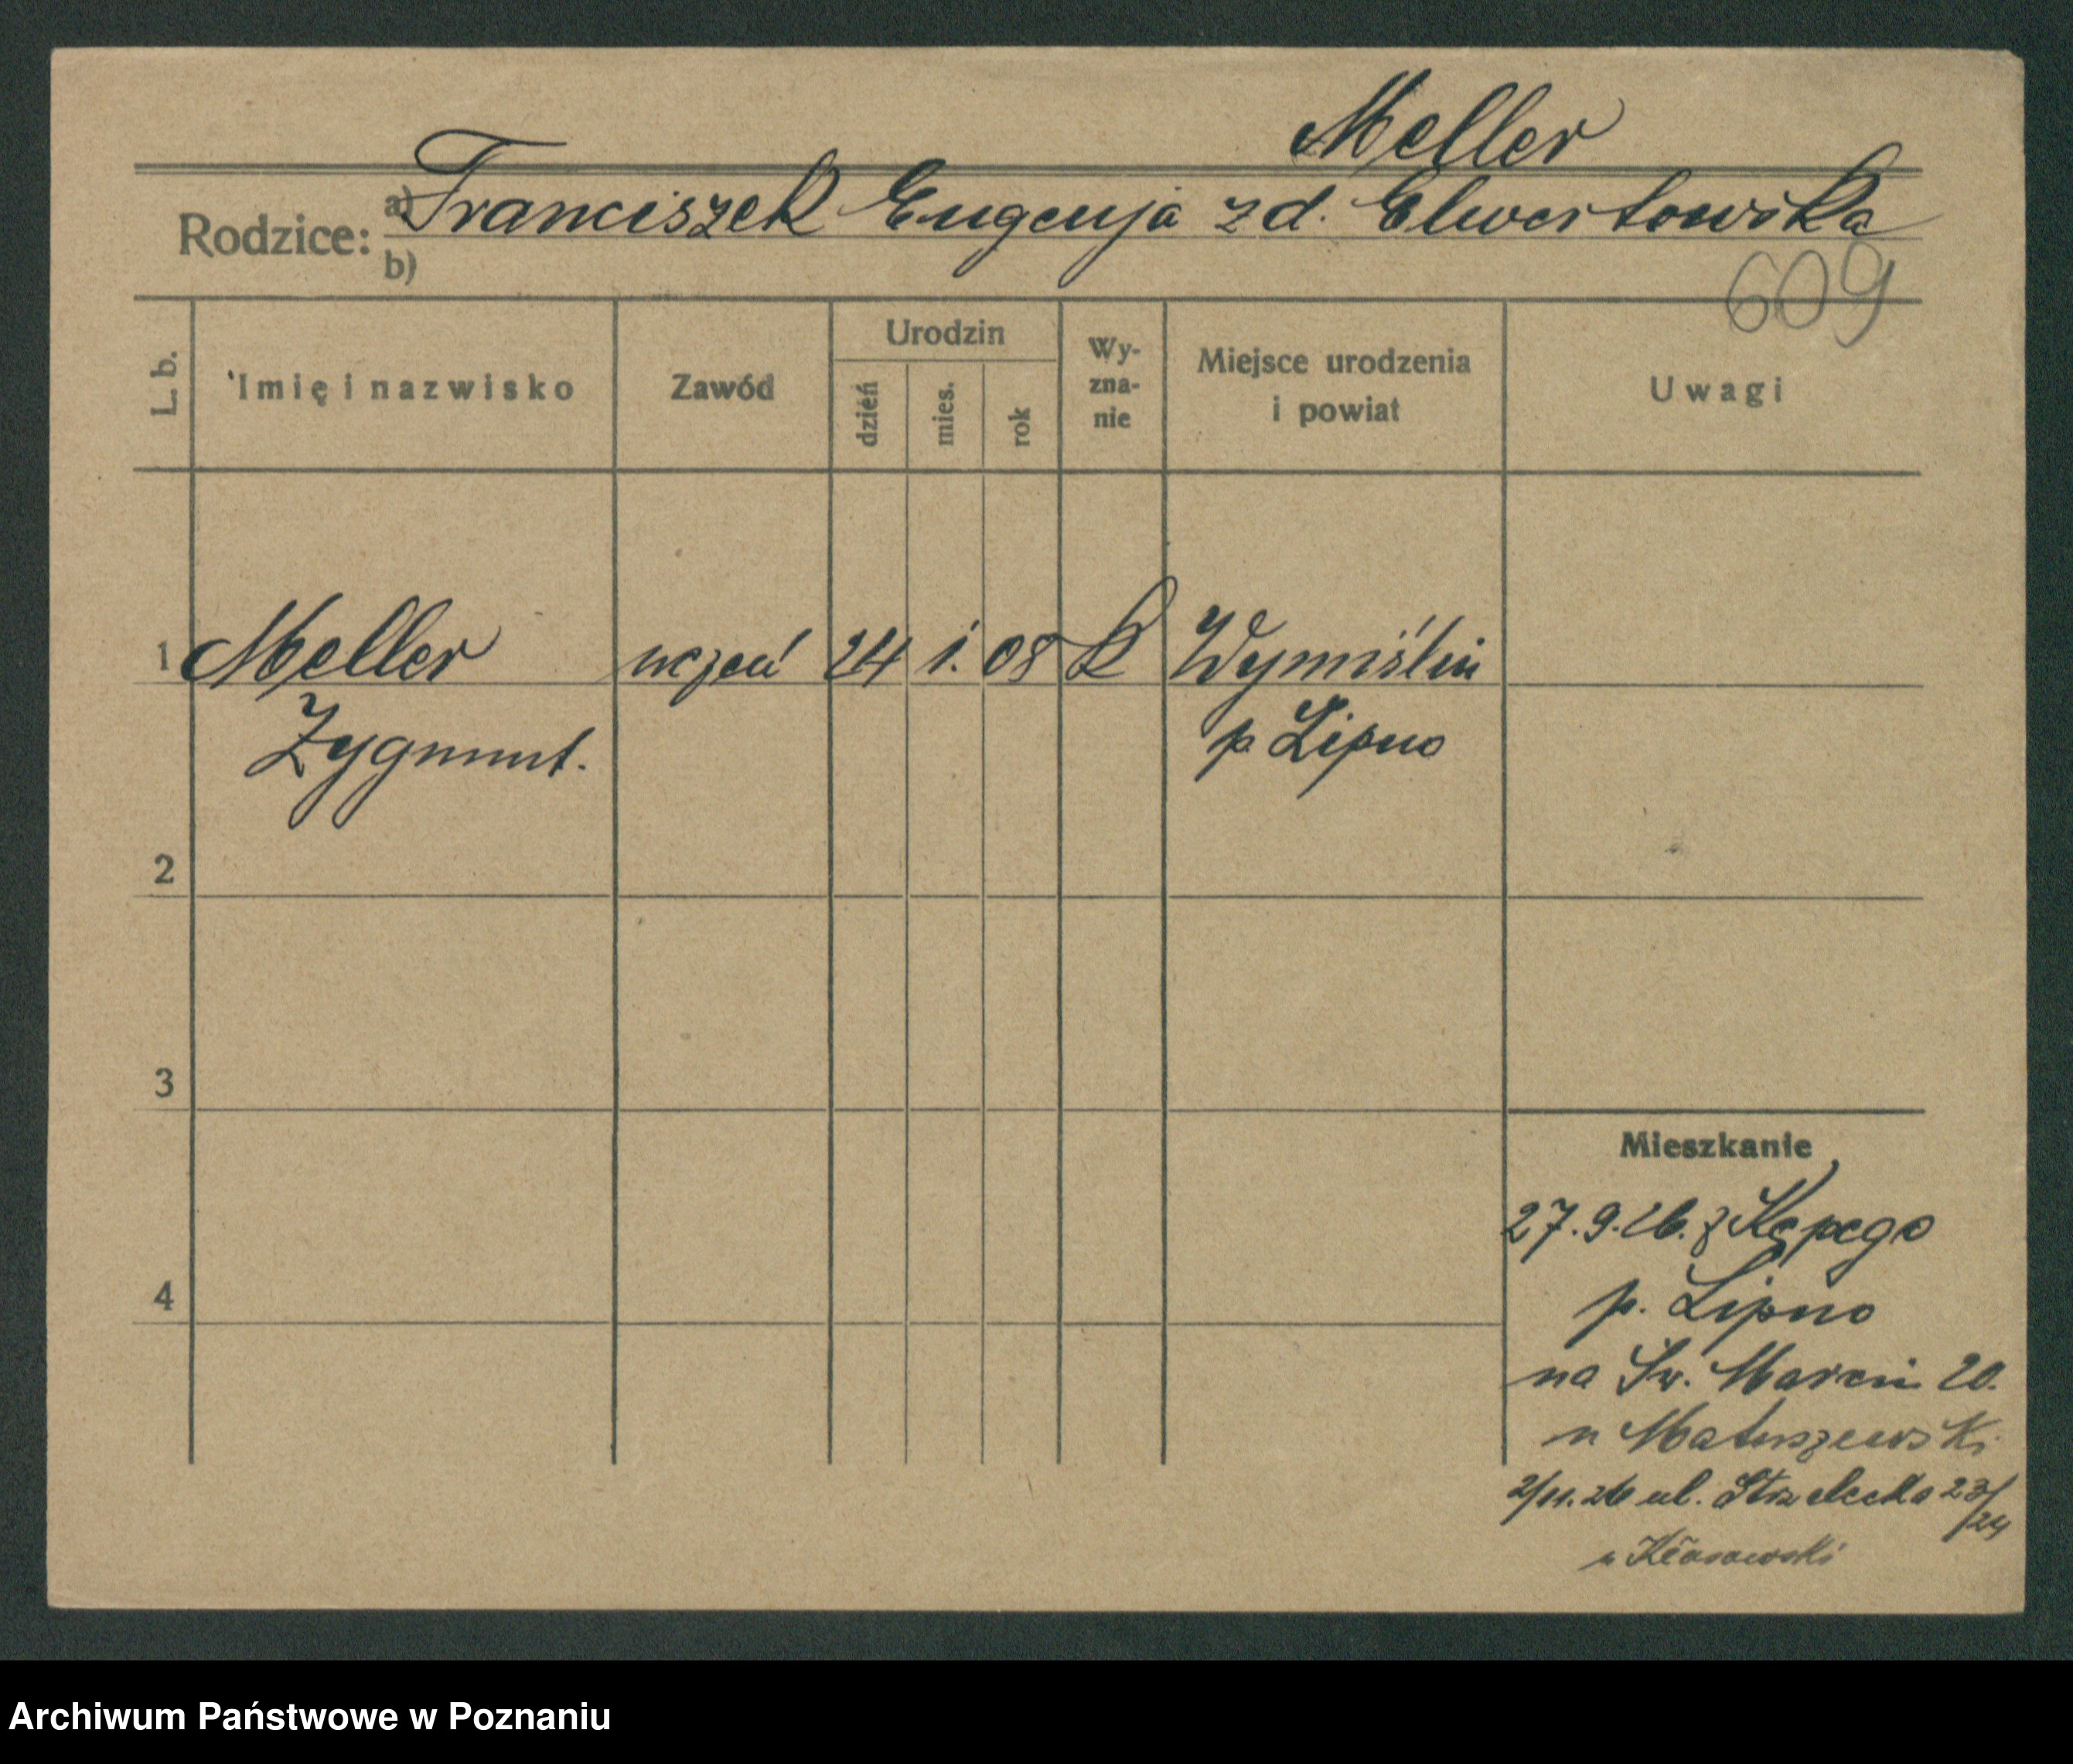 Meller
Rodzice: a) Franciszek Eugenja z d. Elwertowska
b)
609
L. b.
Imię i nazwisko
Zawód
Urodzin
dzień
mies.
rok
Wy-
zna-
nie
Miejsce urodzenia
i powiat
Uwagi
1 Meller uczeń 24 1. 08 k Wymiślin
Zygmunt. p Lipno
2
3
4
Mieszkanie
27.9.26. z
p. Lipno
na Św. Marcin 20.
u Matuszewski
2/11.26 ul. Strzelecka 23/24
u
Archiwum Państwowe w Poznaniu